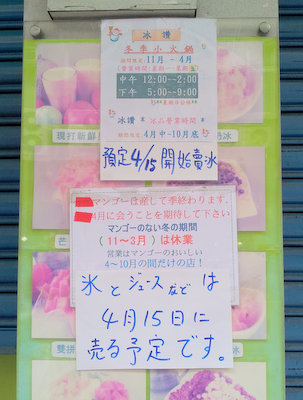 冰讚
冬季小火鍋
期間限定 11月 - 4月
中午 12:00~2:00
下午 5:00~9:00
冰讚 * 冰品營業時間 *
期間限定 4月中-10月底
預定4/15開始賣冰
マンゴーは産して季終わります.
4月に会うことを期待して下さい
マンゴーのない冬の期間
(11～3月)は休業
営業はマンゴーのおいしい
4～10月の間だけの店！
氷とジュースなどは
4月15日に
売る予定です。
現打新鮮
冰
芒
雙拼